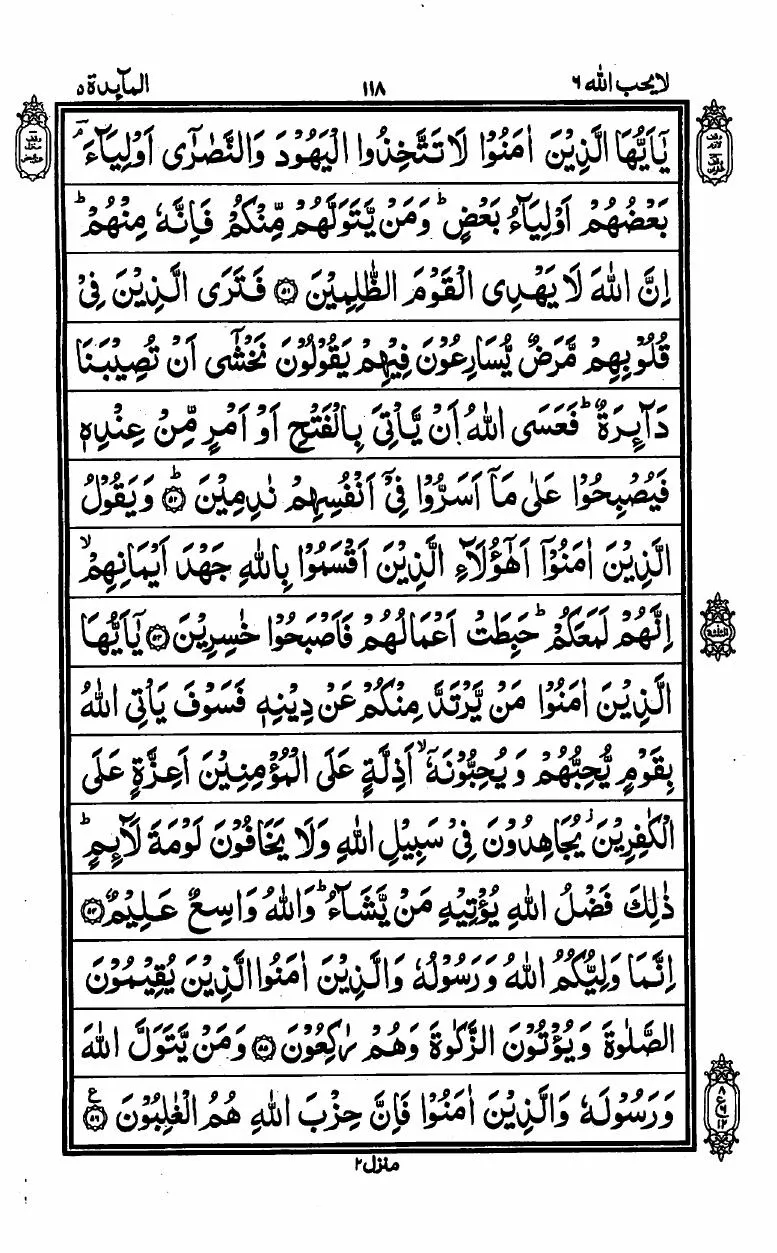 لا يحب الله ٦ ١١٨ المآىِٕدة ٥
يٰۤاَيُّهَا الَّذِيْنَ اٰمَنُوْا لَا تَتَّخِذُوا الْيَهُوْدَ وَالنَّصٰرٰۤى اَوْلِيَآءَ ۘؔ
بَعْضُهُمْ اَوْلِيَآءُ بَعْضٍ ؕ وَمَنْ يَّتَوَلَّهُمْ مِّنْكُمْ فَاِنَّهٗ مِنْهُمْ ؕ
اِنَّ اللّٰهَ لَا يَهْدِى الْقَوْمَ الظّٰلِمِيْنَ ۝٥١ فَتَرَى الَّذِيْنَ فِىْ
قُلُوْبِهِمْ مَّرَضٌ يُّسَارِعُوْنَ فِيْهِمْ يَقُوْلُوْنَ نَخْشٰۤى اَنْ تُصِيْبَنَا
دَآىِٕرَةٌ ؕ فَعَسَى اللّٰهُ اَنْ يَّاْتِىَ بِالْفَتْحِ اَوْ اَمْرٍ مِّنْ عِنْدِهٖ
فَيُصْبِحُوْا عَلٰى مَاۤ اَسَرُّوْا فِىْۤ اَنْفُسِهِمْ نٰدِمِيْنَ ۝٥٢ؕ وَيَقُوْلُ
الَّذِيْنَ اٰمَنُوْۤا اَهٰۤؤُلَآءِ الَّذِيْنَ اَقْسَمُوْا بِاللّٰهِ جَهْدَ اَيْمَانِهِمْ ۙ
اِنَّهُمْ لَمَعَكُمْ ؕ حَبِطَتْ اَعْمَالُهُمْ فَاَصْبَحُوْا خٰسِرِيْنَ ۝٥٣ يٰۤاَيُّهَا
الَّذِيْنَ اٰمَنُوْا مَنْ يَّرْتَدَّ مِنْكُمْ عَنْ دِيْنِهٖ فَسَوْفَ يَاْتِى اللّٰهُ
بِقَوْمٍ يُّحِبُّهُمْ وَيُحِبُّوْنَهٗۤ ۙ اَذِلَّةٍ عَلَى الْمُؤْمِنِيْنَ اَعِزَّةٍ عَلَى
الْكٰفِرِيْنَ ؗ يُجَاهِدُوْنَ فِىْ سَبِيْلِ اللّٰهِ وَلَا يَخَافُوْنَ لَوْمَةَ لَآىِٕمٍ ؕ
ذٰلِكَ فَضْلُ اللّٰهِ يُؤْتِيْهِ مَنْ يَّشَآءُ ؕ وَاللّٰهُ وَاسِعٌ عَلِيْمٌ ۝٥٤
اِنَّمَا وَلِيُّكُمُ اللّٰهُ وَرَسُوْلُهٗ وَالَّذِيْنَ اٰمَنُوا الَّذِيْنَ يُقِيْمُوْنَ
الصَّلٰوةَ وَيُؤْتُوْنَ الزَّكٰوةَ وَهُمْ رٰكِعُوْنَ ۝٥٥ وَمَنْ يَّتَوَلَّ اللّٰهَ
وَرَسُوْلَهٗ وَالَّذِيْنَ اٰمَنُوْا فَاِنَّ حِزْبَ اللّٰهِ هُمُ الْغٰلِبُوْنَ ۝٥٦ع
٨
ع ٦
١٢
منزل ٢